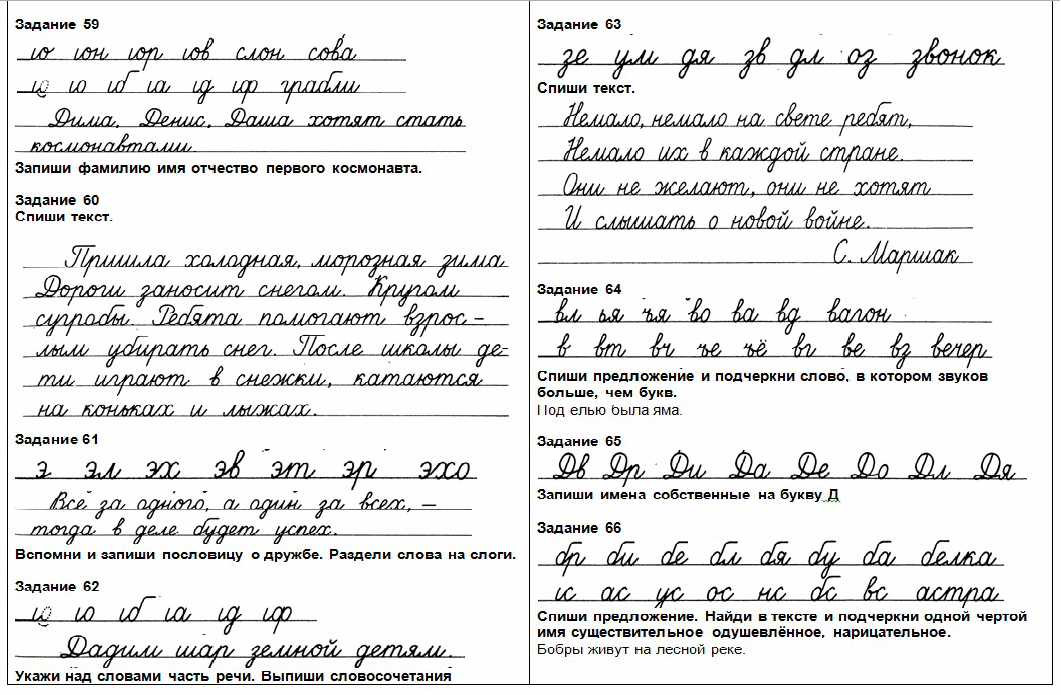 Задание 59
ю юн юр юв слон сова
ю ю юб юа юд юф грабли
Дима, Денис, Даша хотят стать
космонавтами.
Запиши фамилию имя отчество первого космонавта.
Задание 60
Спиши текст.
Пришла холодная, морозная зима
Дороги заносит снегом. Кругом
сугробы. Ребята помогают взрос –
лым убирать снег. После школы де-
ти играют в снежки, катаются
на коньках и лыжах.
Задание 61
э эл эх эв эт эр эхо
Все за одного, а один за всех, –
тогда в деле будет успех.
Вспомни и запиши пословицу о дружбе. Раздели слова на слоги.
Задание 62
Дадим шар земной детям.
Укажи над словами часть речи. Выпиши словосочетания
Задание 63
зе ум дя зв дл оз звонок
Спиши текст.
Немало, немало на свете ребят,
Немало их в каждой стране.
Они не желают, они не хотят
И слышать о новой войне.
С. Маршак
Задание 64
вл ья ъя во ва вд вагон
в вт вч ъе ъё вг ве вз вечер
Спиши предложение и подчеркни слово, в котором звуков
больше, чем букв.
Под елью была яма.
Задание 65
Дв Др Ди Да Де До Дл Дя
Запиши имена собственные на букву Д
Задание 66
бр би бе бл бя бу ба белка
ас ус ос нс бс вс астра
Спиши предложение. Найди в тексте и подчеркни одной чертой
имя существительное одушевлённое, нарицательное.
Бобры живут на лесной реке.